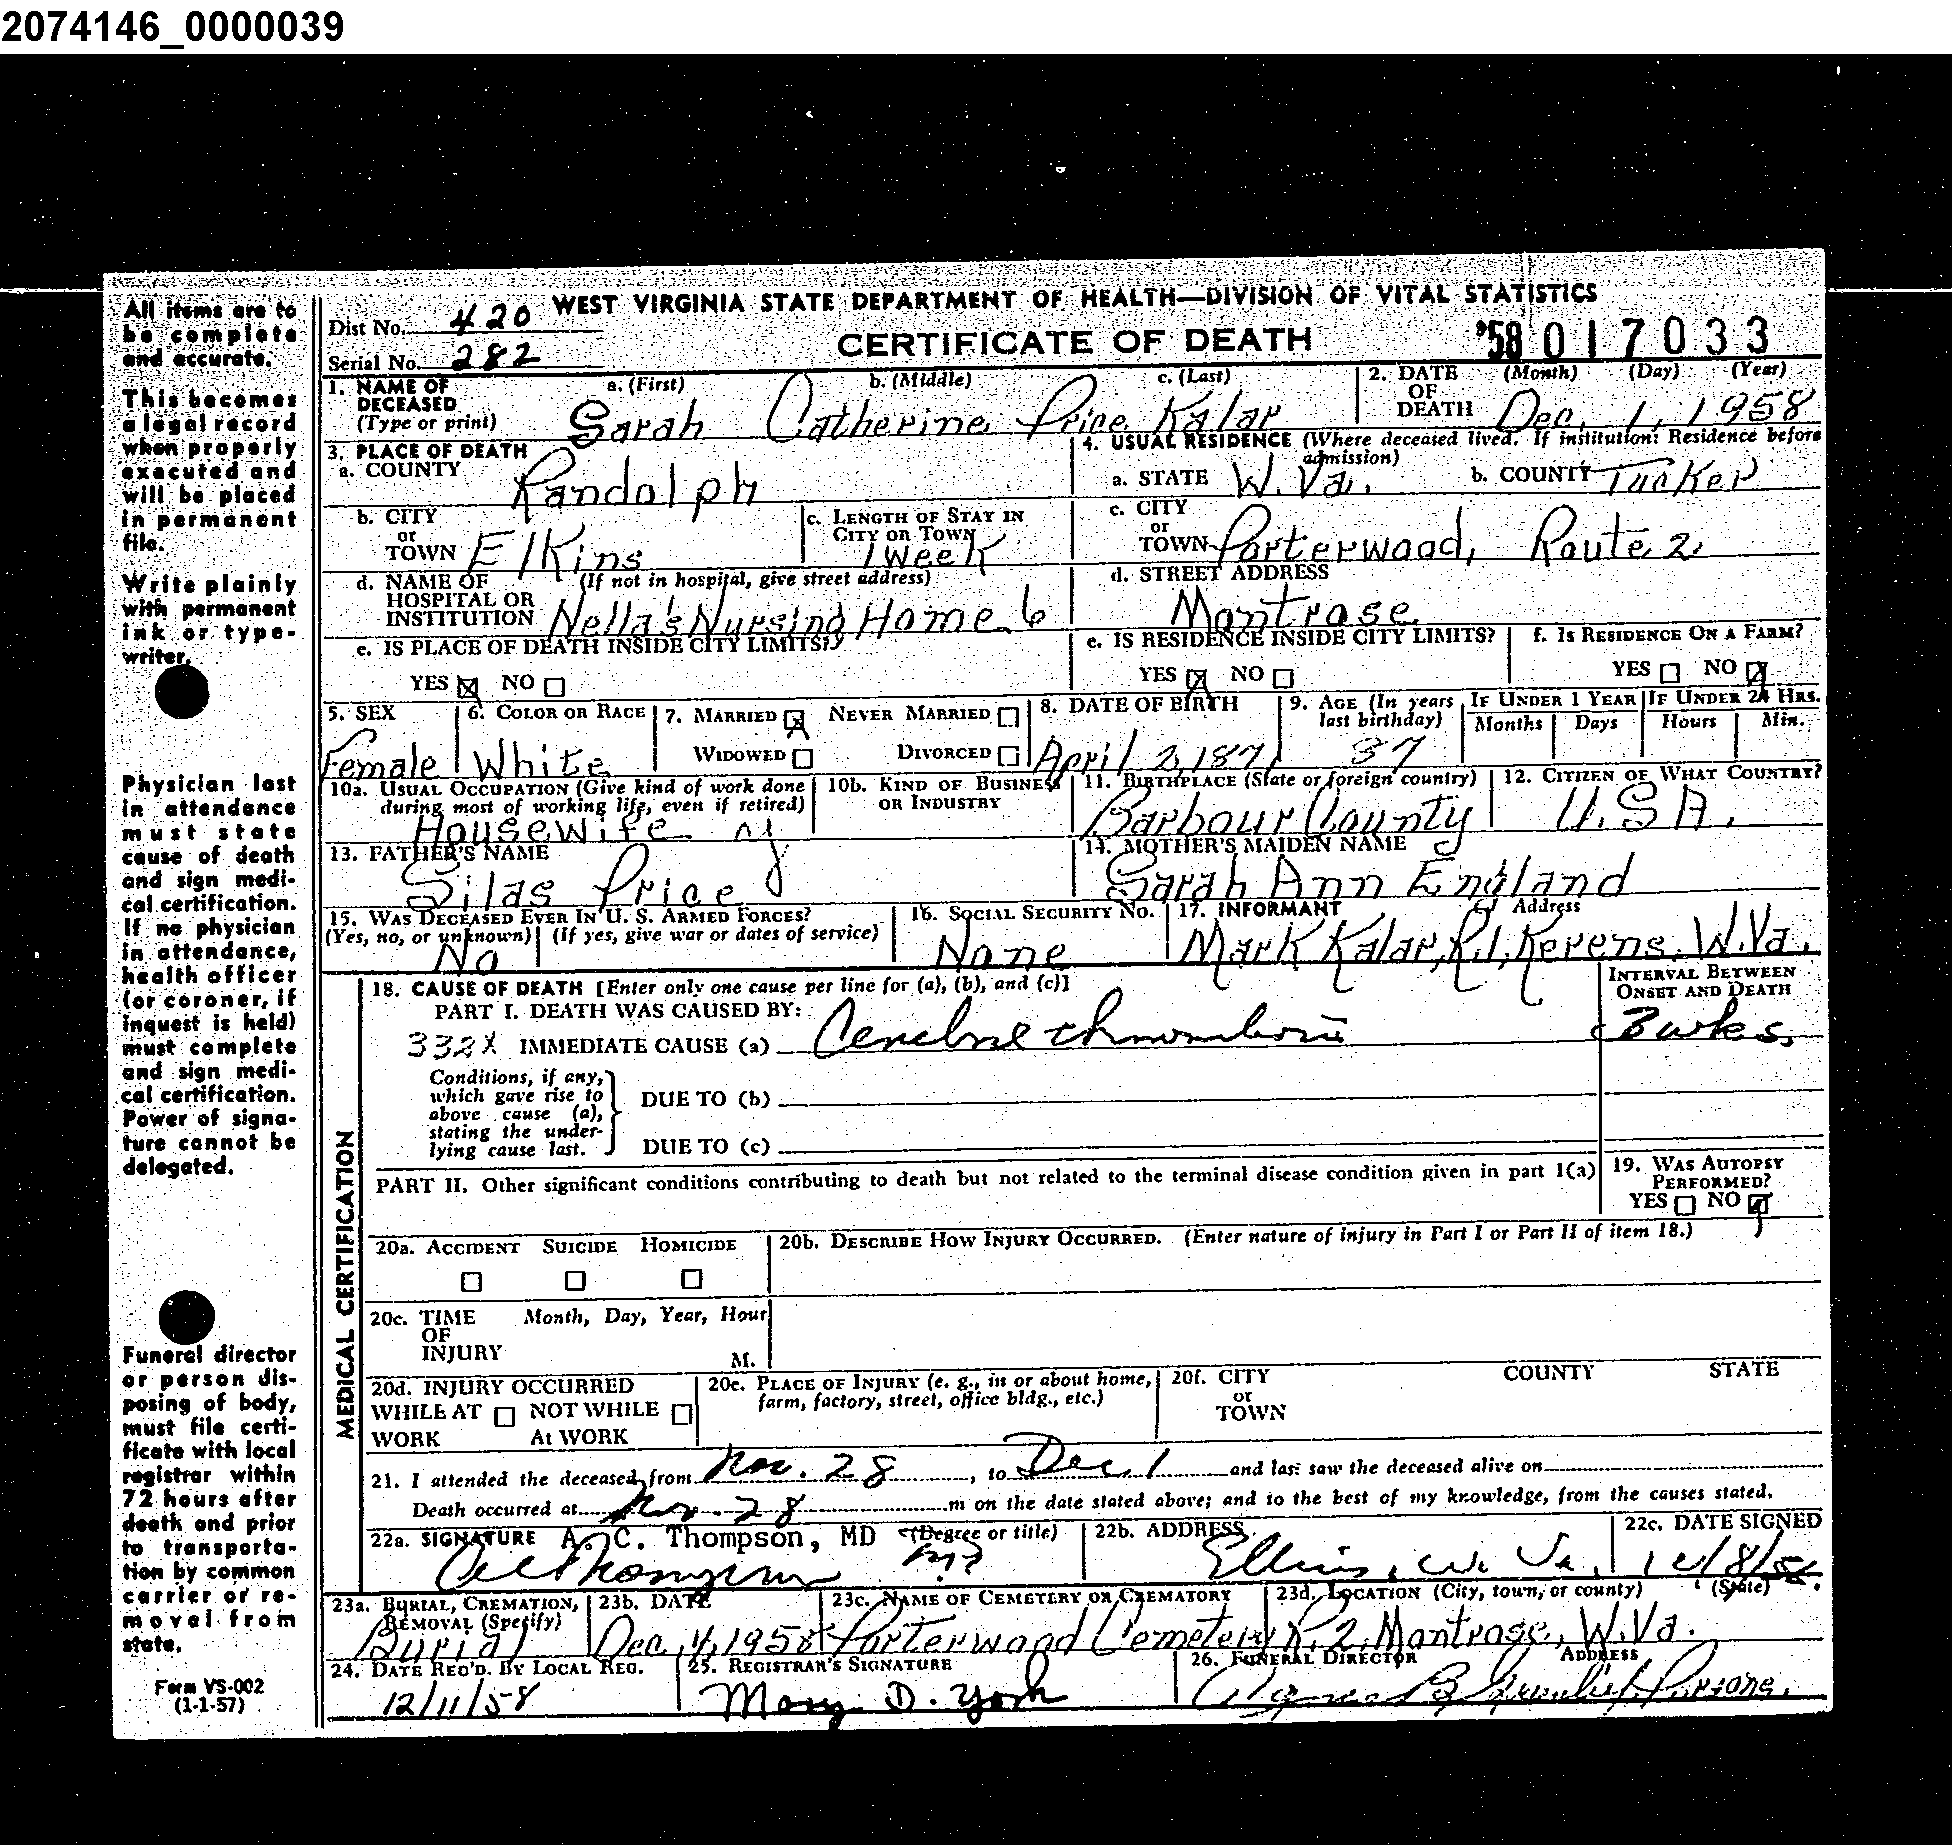 2074146_0000039
All items are to
be complete
and accurate.
This becomes
a legal record
when properly
executed and
will be placed
in permanent
file.
Write plainly
with permanent
ink or type-
writer.
Physician last
in attendance
must state
cause of death
and sign medi-
cal certification.
If no physician
in attendance,
health officer
(or coroner, if
inquest is held)
must complete
and sign medi-
cal certification.
Power of signa-
ture cannot be
delegated.
Funeral director
or person dis-
posing of body,
must file certi-
ficate with local
registrar within
72 hours after
death and prior
to transporta-
tion by common
carrier or re-
moval from
state.
Form VS-002
(1-1-57)
WEST VIRGINIA STATE DEPARTMENT OF HEALTH—DIVISION OF VITAL STATISTICS
Dist No. 420
Serial No. 282
CERTIFICATE OF DEATH
'58 017033
1. NAME OF DECEASED (Type or print) a. (First) b. (Middle) c. (Last)
Sarah Catherine Price Kalar
2. DATE OF DEATH (Month) (Day) (Year)
Dec. 1, 1958
3. PLACE OF DEATH
a. COUNTY Randolph
4. USUAL RESIDENCE (Where deceased lived. If institution: Residence before admission)
a. STATE W. Va. b. COUNTY Tucker
b. CITY or TOWN Elkins
c. LENGTH OF STAY IN CITY OR TOWN 1 Week
c. CITY or TOWN Porterwood, Route 2
d. NAME OF HOSPITAL OR INSTITUTION (If not in hospital, give street address)
Nella's Nursing Home 6
d. STREET ADDRESS
Montrose
e. IS PLACE OF DEATH INSIDE CITY LIMITS?
YES X NO
e. IS RESIDENCE INSIDE CITY LIMITS?
YES X NO
f. IS RESIDENCE ON A FARM?
YES NO X
5. SEX Female
6. COLOR OR RACE White
7. MARRIED X NEVER MARRIED
WIDOWED DIVORCED
8. DATE OF BIRTH April 2, 1871
9. AGE (In years last birthday) 87
IF UNDER 1 YEAR Months Days
IF UNDER 24 HRS. Hours Min.
10a. USUAL OCCUPATION (Give kind of work done during most of working life, even if retired)
Housewife
10b. KIND OF BUSINESS OR INDUSTRY
11. BIRTHPLACE (State or foreign country)
Barbour County
12. CITIZEN OF WHAT COUNTRY?
U.S.A.
13. FATHER'S NAME
Silas Price
14. MOTHER'S MAIDEN NAME
Sarah Ann England
15. WAS DECEASED EVER IN U. S. ARMED FORCES?
(Yes, no, or unknown) (If yes, give war or dates of service)
No
16. SOCIAL SECURITY NO.
None
17. INFORMANT Address
Mark Kalar, R.1, Kerens, W.Va.
MEDICAL CERTIFICATION
18. CAUSE OF DEATH [Enter only one cause per line for (a), (b), and (c)]
INTERVAL BETWEEN ONSET AND DEATH
PART I. DEATH WAS CAUSED BY:
332X IMMEDIATE CAUSE (a) Cerebral thrombosis
Conditions, if any, which gave rise to above cause (a), stating the under-lying cause last.
DUE TO (b)
DUE TO (c)
PART II. Other significant conditions contributing to death but not related to the terminal disease condition given in part I(a)
19. WAS AUTOPSY PERFORMED?
YES NO
20a. ACCIDENT SUICIDE HOMICIDE
20b. DESCRIBE HOW INJURY OCCURRED. (Enter nature of injury in Part I or Part II of item 18.)
20c. TIME OF INJURY Month, Day, Year, Hour
M.
20d. INJURY OCCURRED
WHILE AT WORK NOT WHILE At WORK
20e. PLACE OF INJURY (e. g., in or about home, farm, factory, street, office bldg., etc.)
20f. CITY or TOWN COUNTY STATE
21. I attended the deceased from Nov. 28, to Dec. 1 and last saw the deceased alive on
Death occurred at Nov. 28 m on the date stated above; and to the best of my knowledge, from the causes stated.
22a. SIGNATURE A. C. Thompson, MD (Degree or title)
22b. ADDRESS Elkins, W. Va.
22c. DATE SIGNED 12/8/58
23a. BURIAL, CREMATION, REMOVAL (Specify)
Burial
23b. DATE
Dec. 4, 1958
23c. NAME OF CEMETERY OR CREMATORY
Porterwood Cemetery
23d. LOCATION (City, town, or county) (State)
R. 2, Montrose, W. Va.
24. DATE REC'D. BY LOCAL REG.
12/11/58
25. REGISTRAR'S SIGNATURE
Mary D. York
26. FUNERAL DIRECTOR ADDRESS
Parsons.